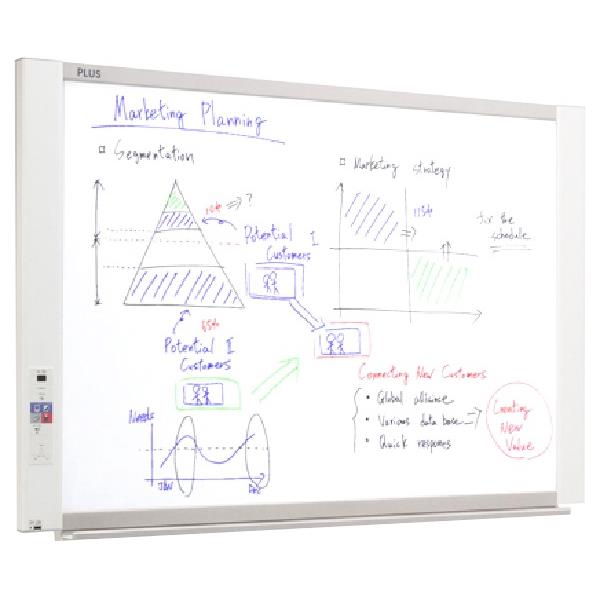 PLUS
Marketing Planning
Segmentation
?
Potential I
Customers
Potential I
Customers
Needs
Marketing strategy
fix the
schedule
Connecting New Customers
• Global alliance
• Various data base
• Quick response
Creating
New
Value